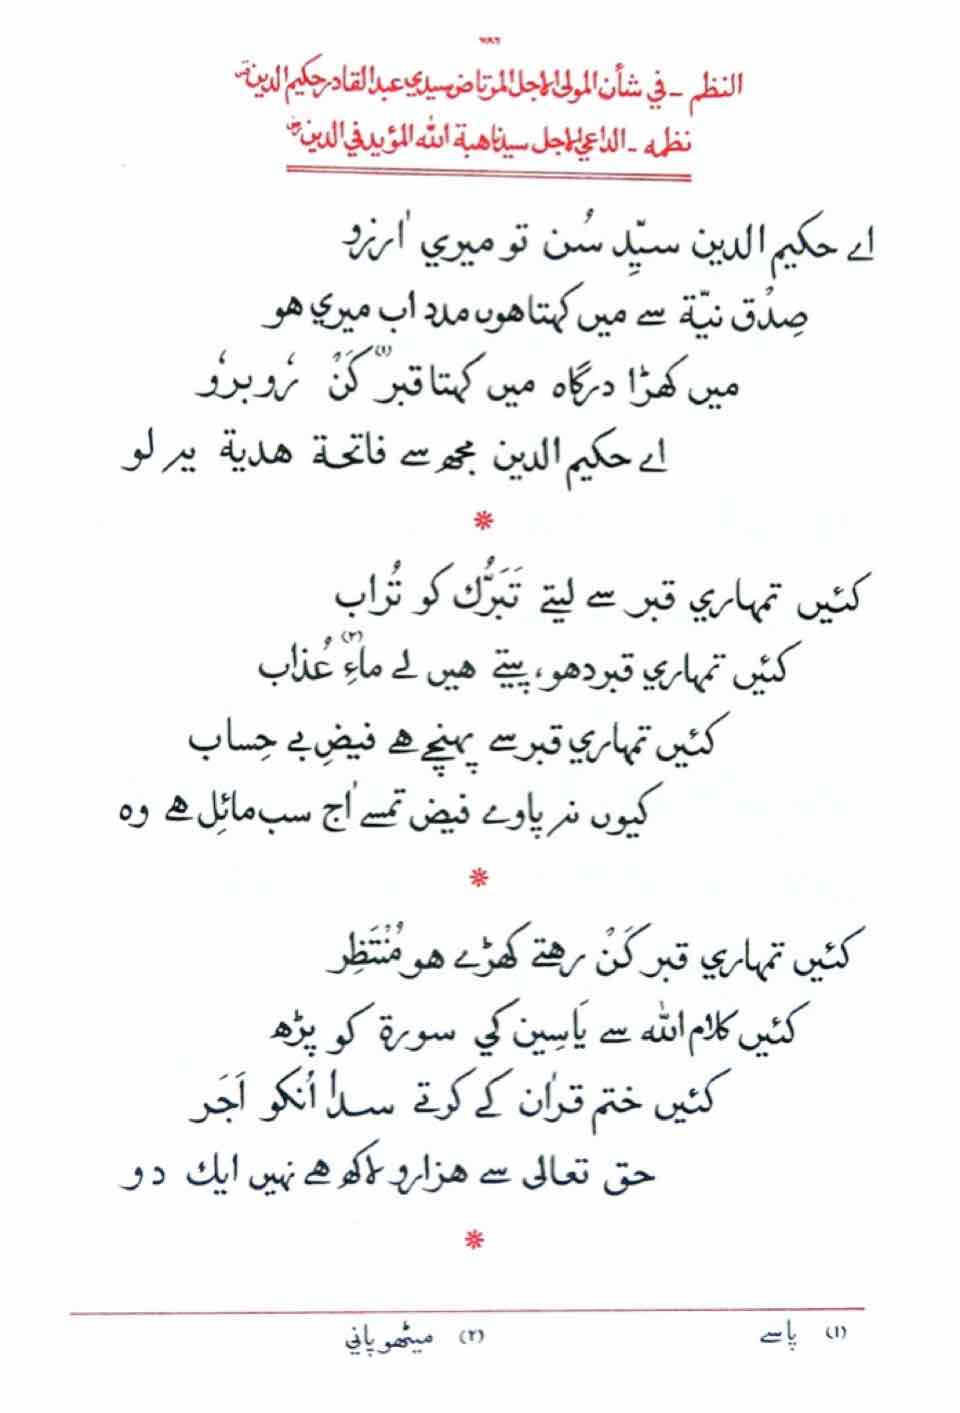 ٧٨٦
النظم ـ في شأن المولى الاجل المرتاض سيدي عبد القادر حكيم الدين قس
نظمه ـ الداعي الاجل سيدنا هبة الله المؤيد في الدين رض
اے حكيم الدين سيّدِ سُن تو ميري اٰرزو
صِدُق نيّة سے ميں كهتا هوں مدد اب ميري هو
ميں كھڑا درگاه ميں كهتا قبر (١) كَنْ رُو برُو
اے حكيم الدين مجھ سے فاتحة هدية يه لو
*
كئيں تمهاري قبر سے ليتے تَبَرُّك كو تُراب
كئيں تمهاري قبر دهو، پيتے هيں لے ماءِ (٢) عُذاب
كئيں تمهاري قبر سے پهنچے هے فيضِ بے حِساب
كيوں نه پاوے فيض تمسے اٰج سب مائِل هے وه
*
كئيں تمهاري قبر كَنْ رهتے كھڑے هو مُنْتَظِر
كئيں كلام الله سے يَاسِين كي سورة كو پڑھ
كئيں ختم قراٰن كے كرتے سدا اُنكو اَجَر
حق تعالى سے هزار و لاكھ هے نهيں ايك دو
*
(١) پاسے
(٢) ميٹھو پاني